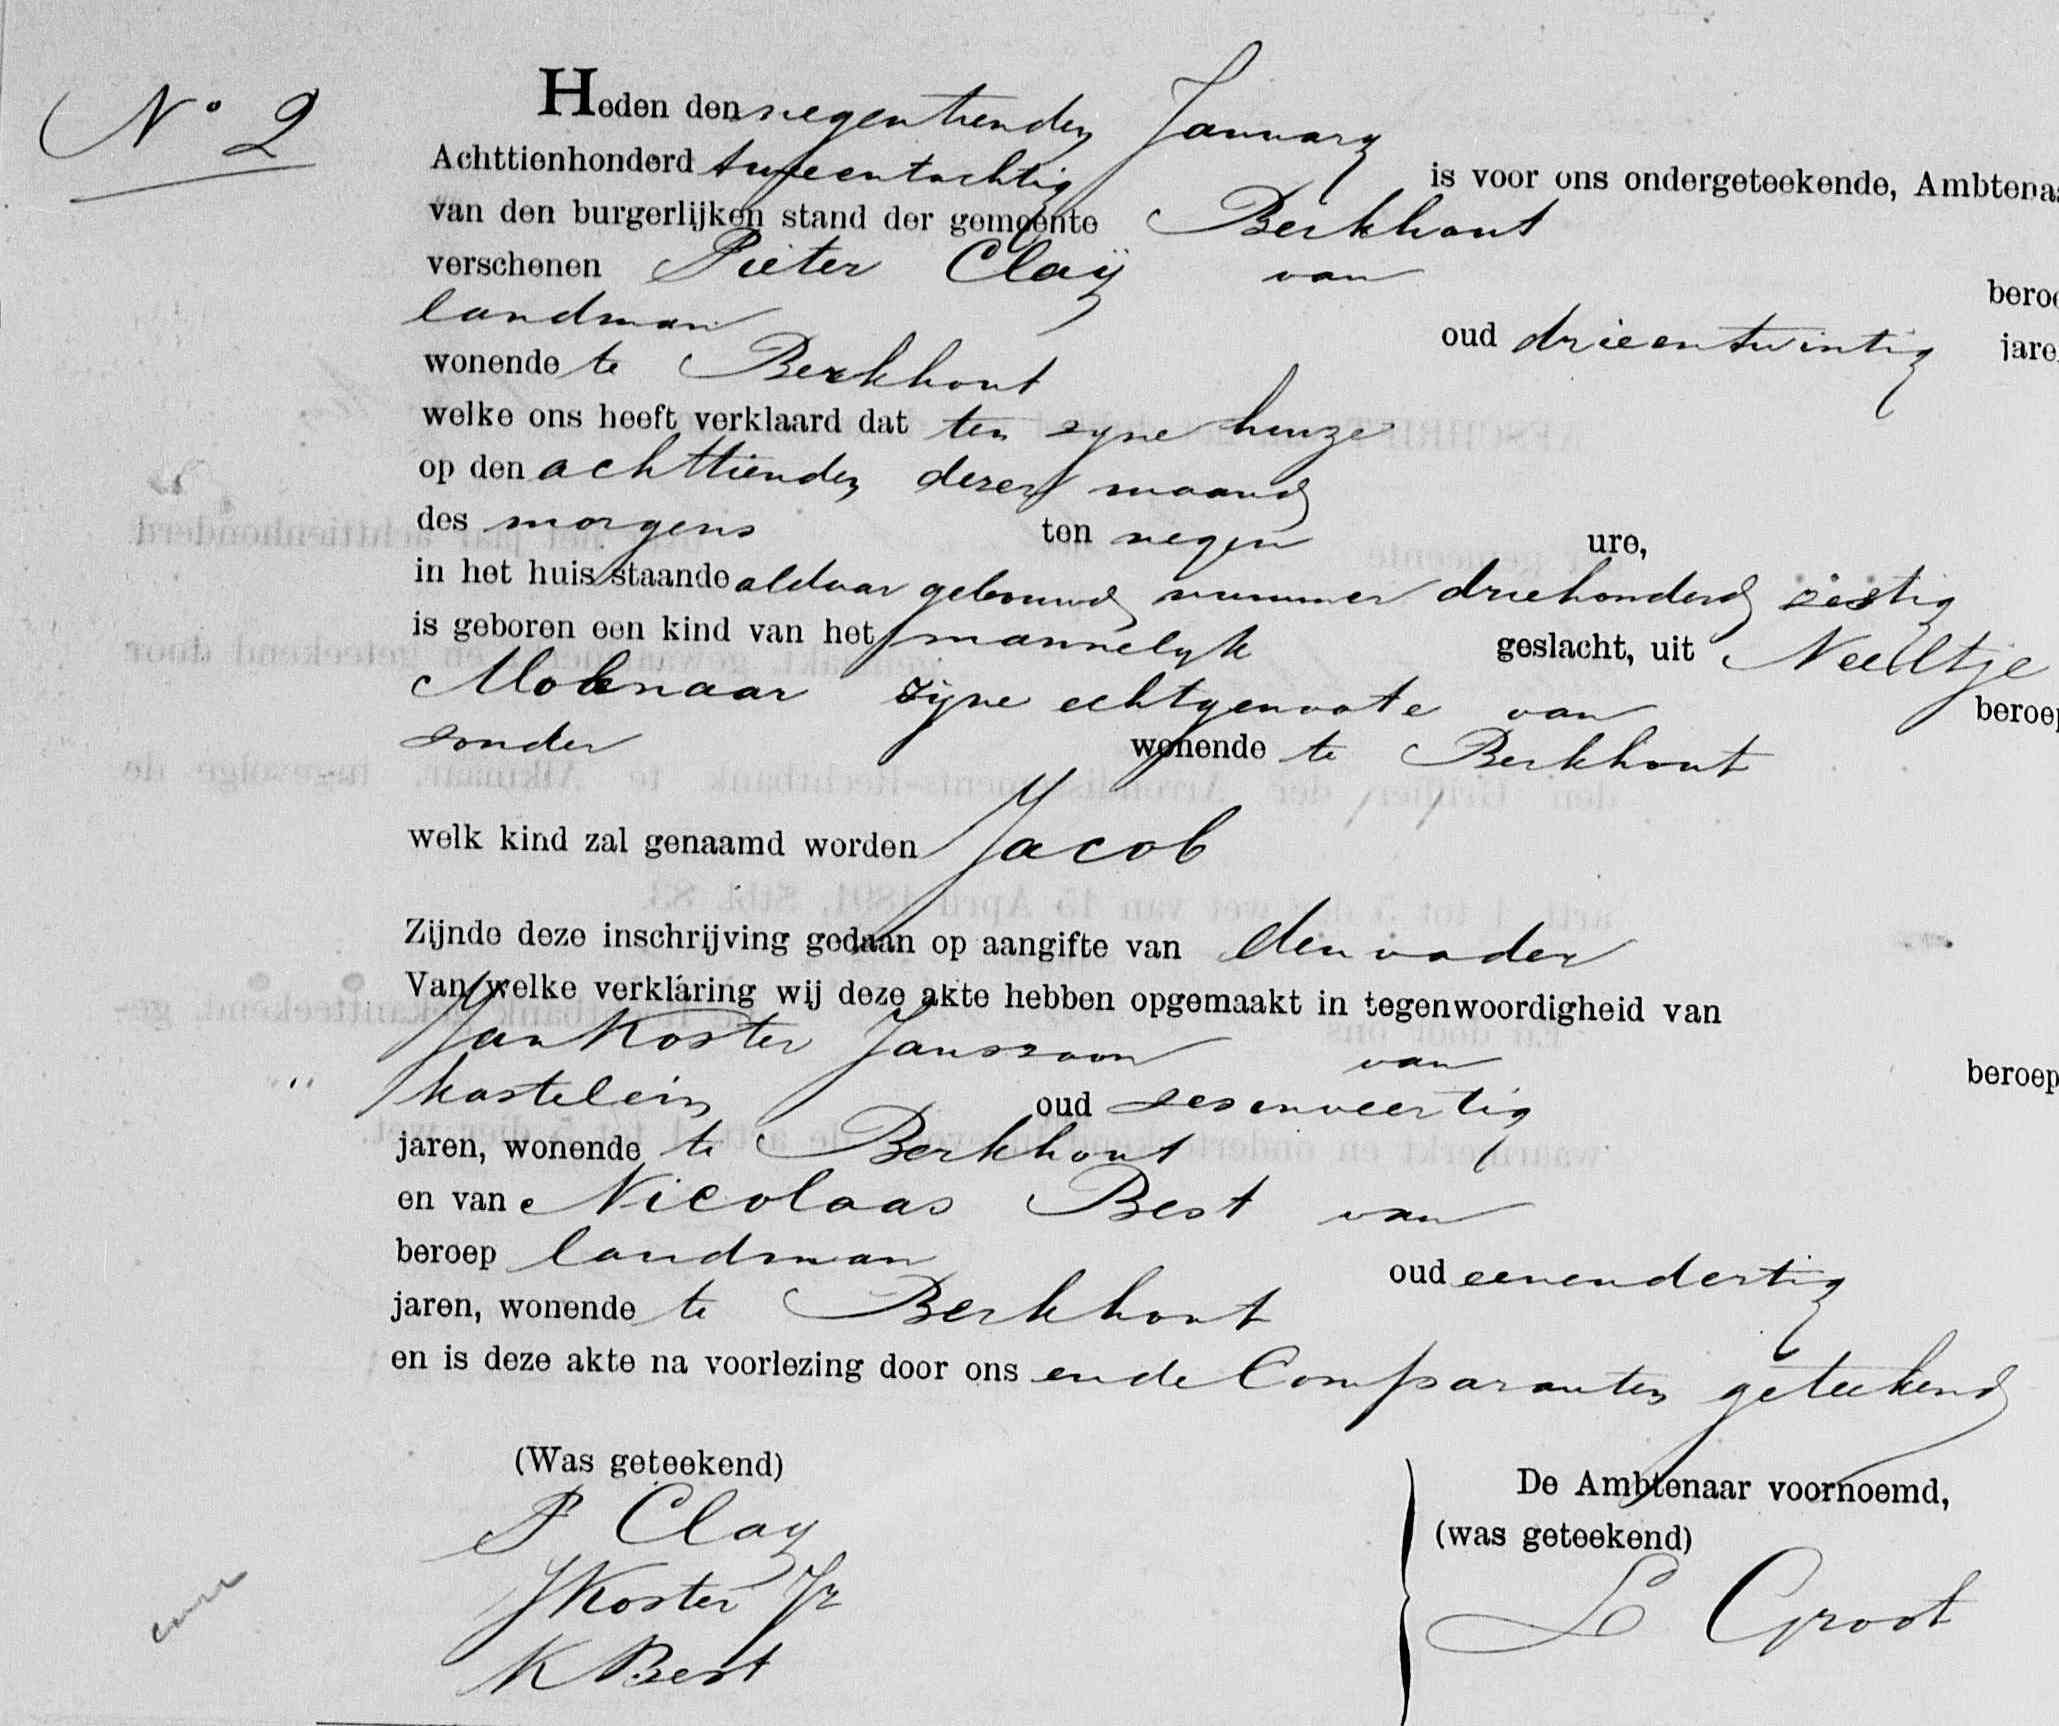 N° 2
Heden den negentienden January
Achttienhonderd tweeentachtig is voor ons ondergeteekende, Ambtenaa
van den burgerlijken stand der gemeente Berkhout
verschenen Pieter Claÿ van beroe
landman oud drieentwintig jare
wonende te Berkhout
welke ons heeft verklaard dat ten zyne huize
op den achttienden dezer maand
des morgens ten negen ure,
in het huis staande aldaar gebouwd nummer driehonderd zestig
is geboren een kind van het mannelyk geslacht, uit Neeltje
Molenaar zijne echtgenoote van beroep
zonder wonende te Berkhout
welk kind zal genaamd worden Jacob
Zijnde deze inschrijving gedaan op aangifte van den vader
Van welke verklaring wij deze akte hebben opgemaakt in tegenwoordigheid van
Jan Koster Janszoon van beroep
kastelein oud zesenveertig
jaren, wonende te Berkhout
en van Nicolaas Best van
beroep landman oud eenendertig
jaren, wonende te Berkhout
en is deze akte na voorlezing door ons en de Comparanten geteekend
(Was geteekend)
P Clay
J Koster Jz
K Best
De Ambtenaar voornoemd,
(was geteekend)
Groot